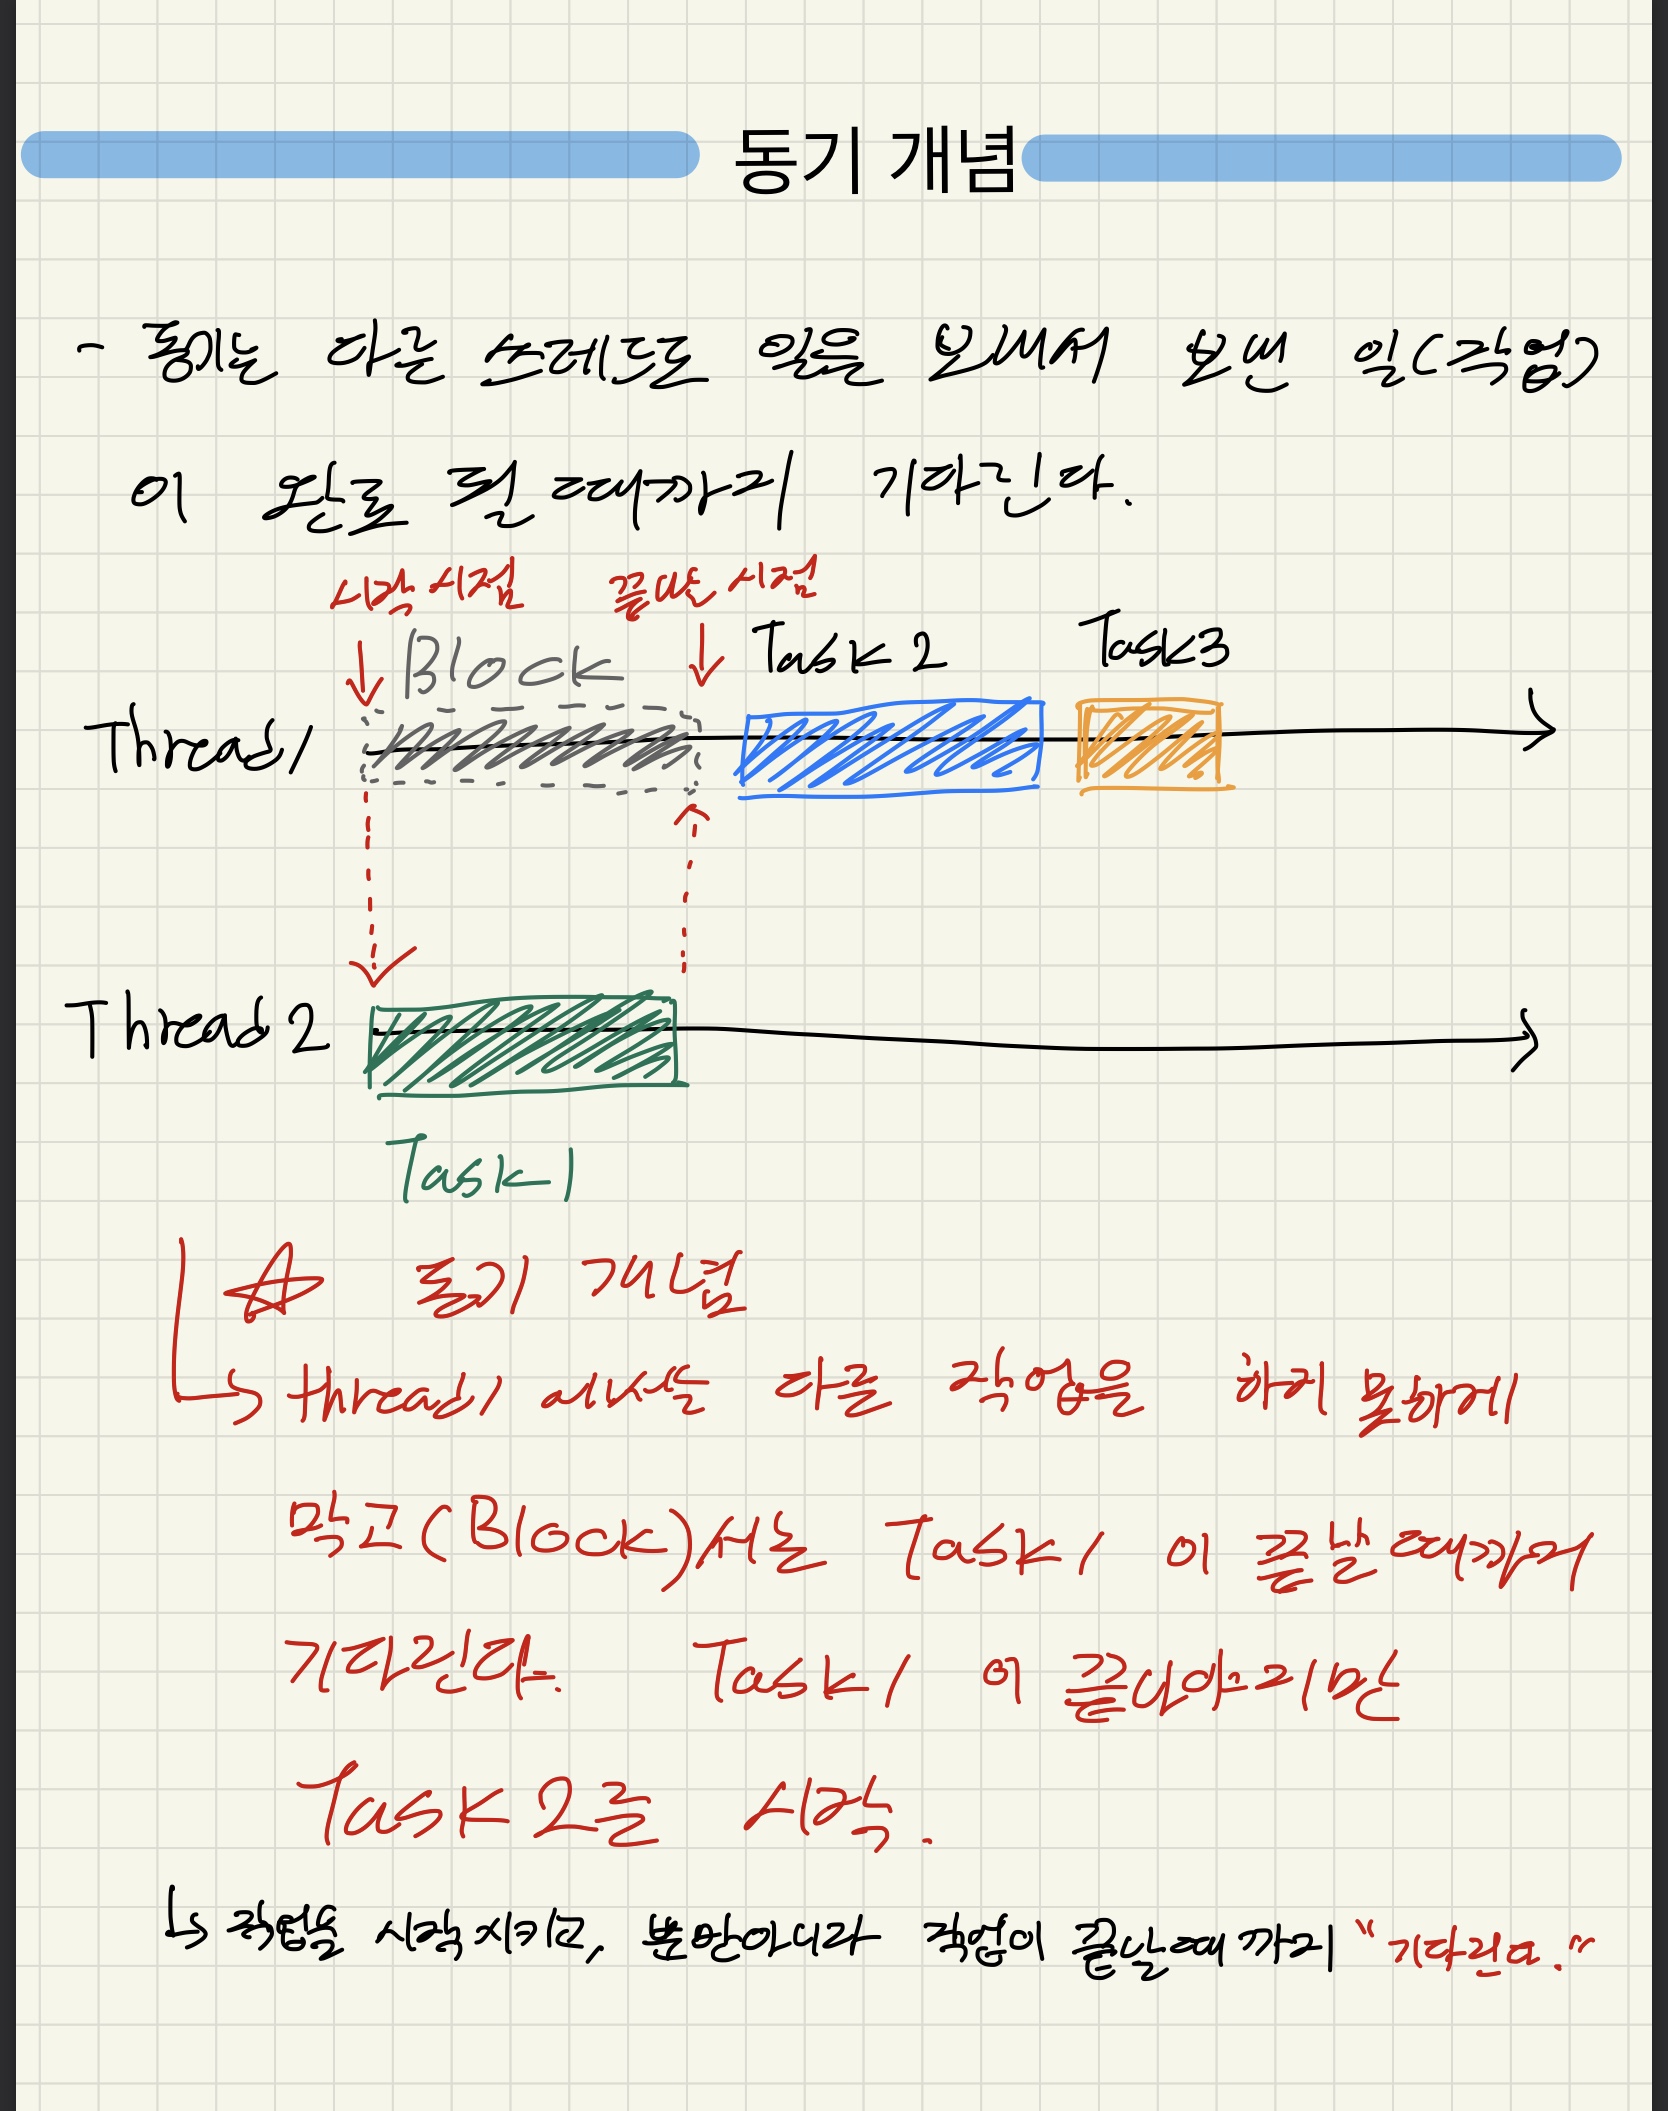 동기 개념
- 동기는 다른 쓰레드로 일을 보내서 보낸 일(작업)
이 완료 될 때까지 기다린다.
시작 시점 끝나는 시점
Block Task 2 Task3
Thread1
Thread 2
Task1
☆ 동기 개념
thread1 에서는 다른 작업을 하지 못하게
막고(Block)서는 Task1 이 끝날때까지
기다린다. Task1 이 끝나야지만
Task2를 시작.
작업을 시작시키고, 뿐만아니라 작업이 끝날때 까지 "기다린다."